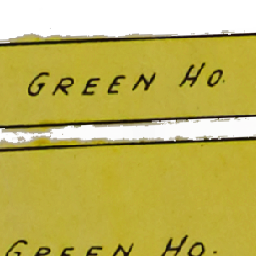 GREEN HO.
GREEN HO.